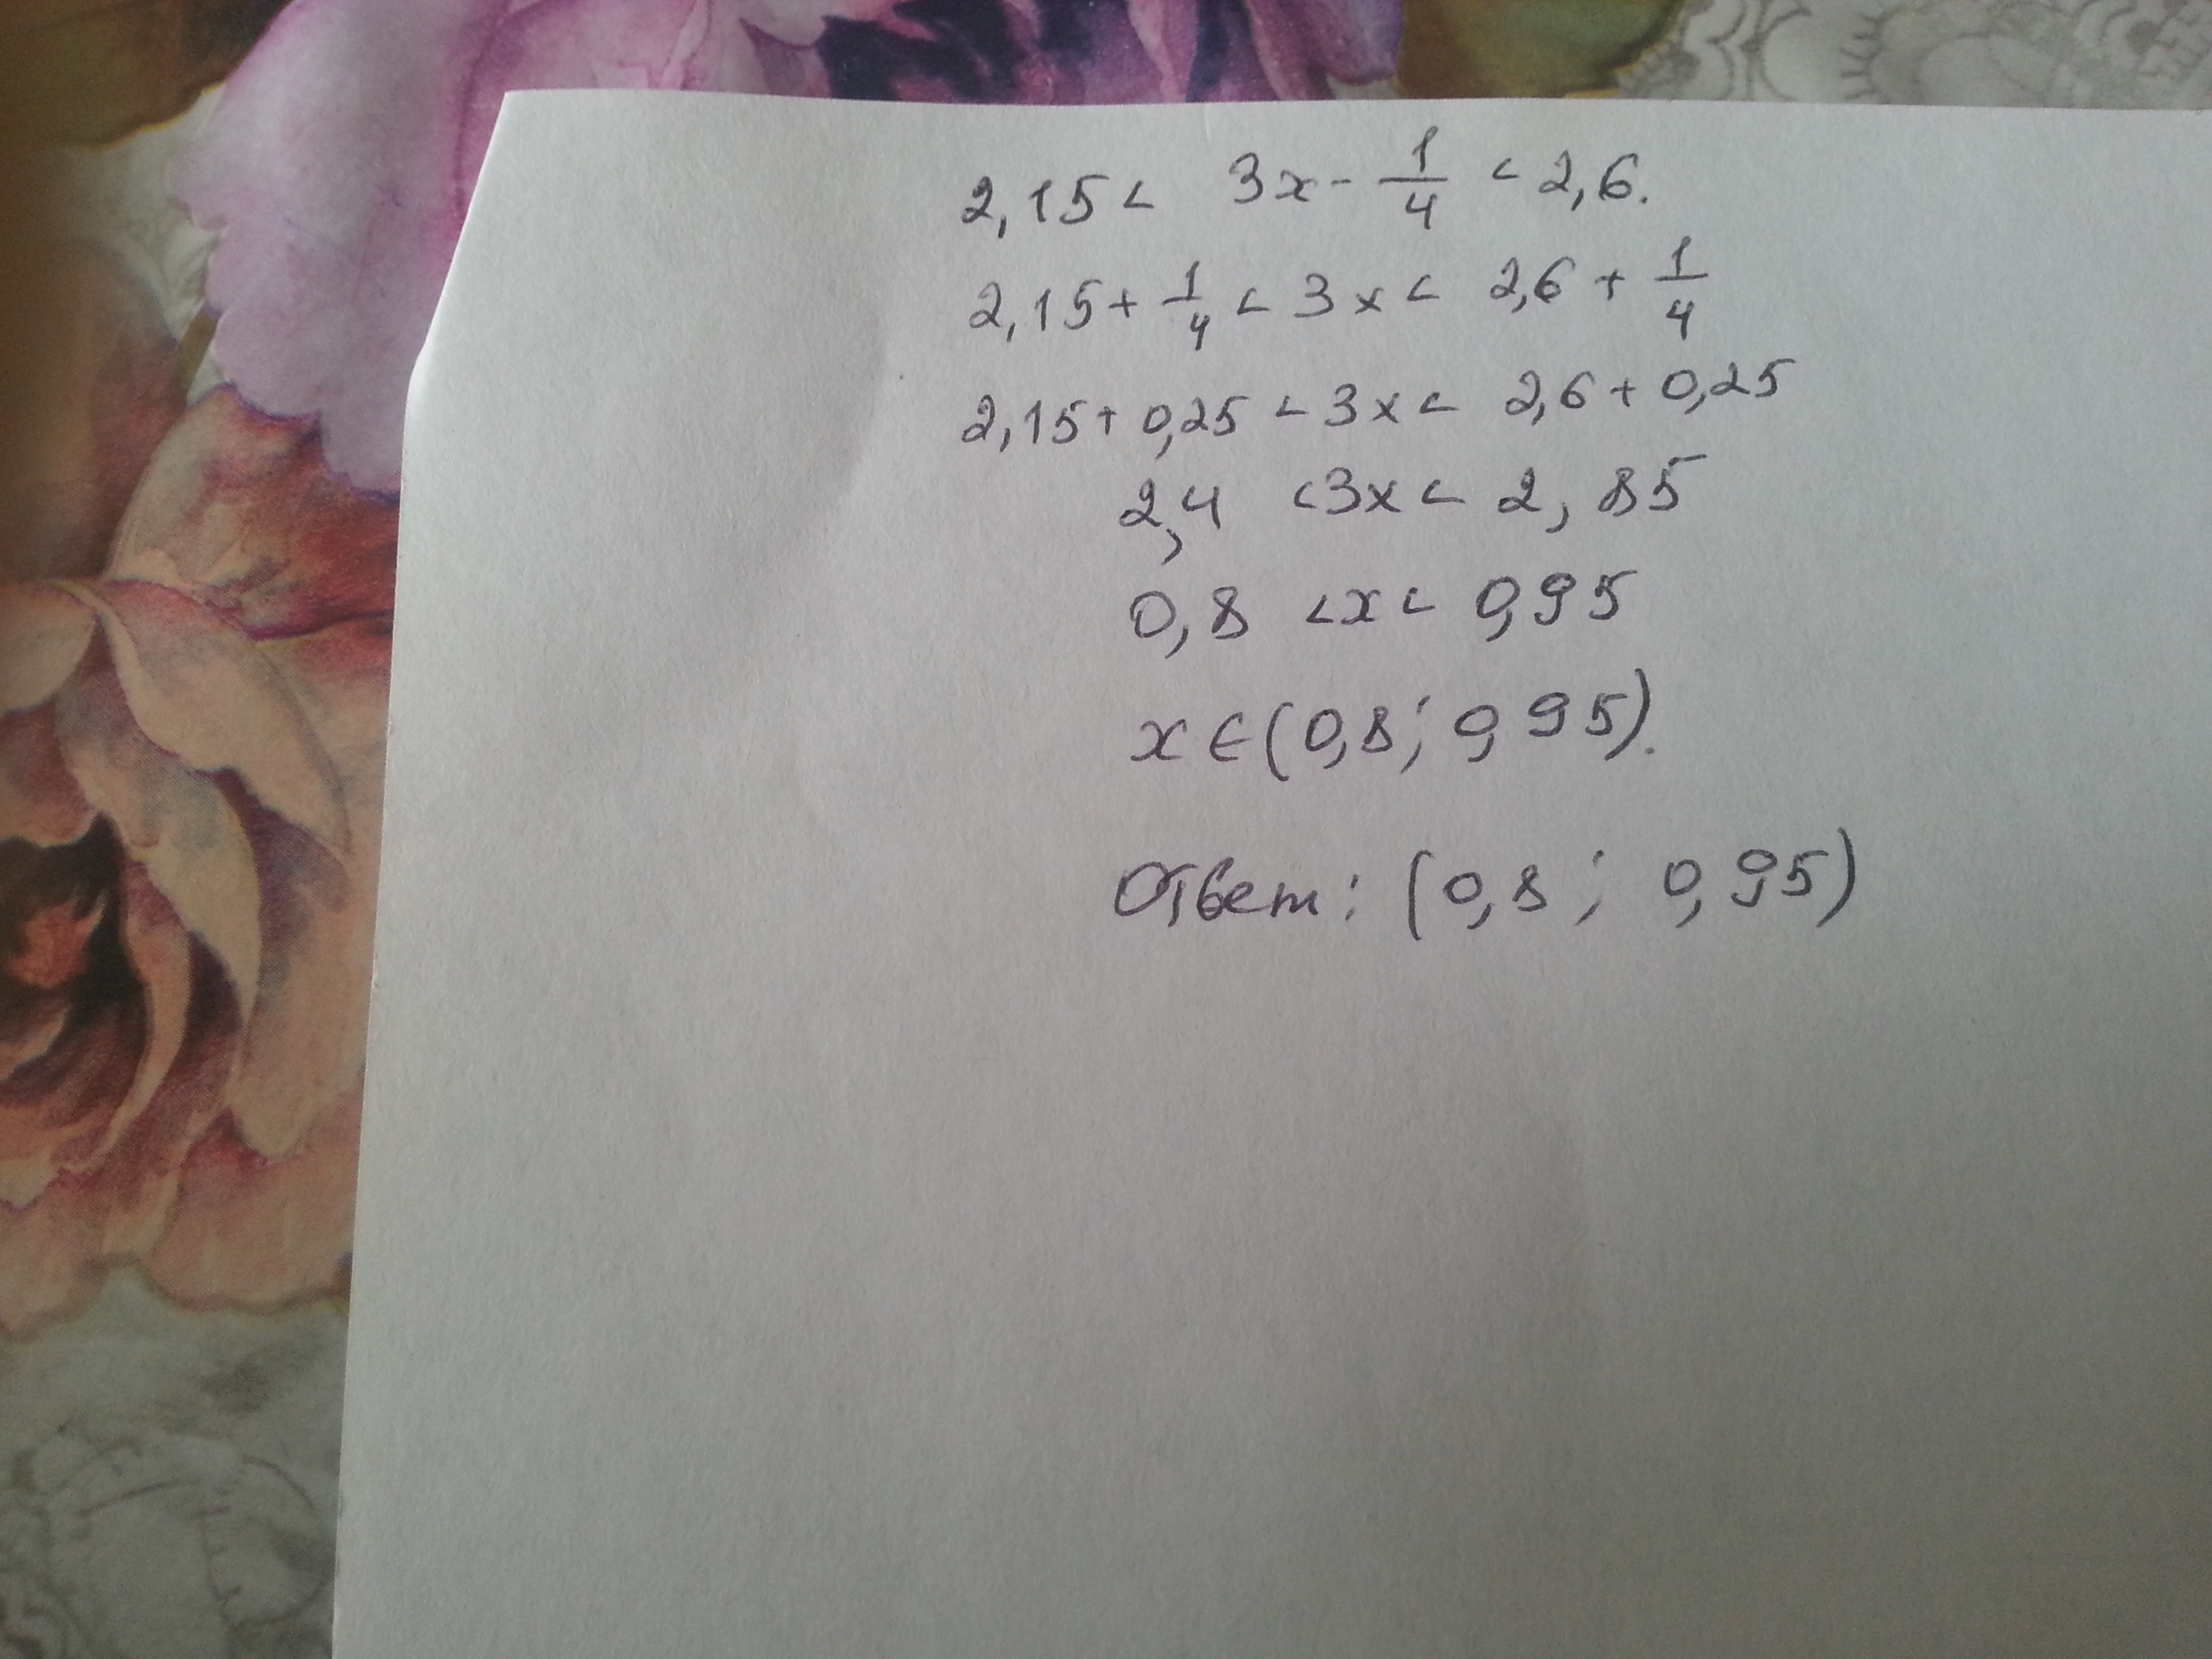 2,15 < 3x - 1/4 < 2,6.
2,15 + 1/4 < 3x < 2,6 + 1/4
2,15 + 0,25 < 3x < 2,6 + 0,25
2,4 < 3x < 2,85
0,8 < x < 0,95
x ∈ (0,8; 0,95).
Ответ: (0,8; 0,95)